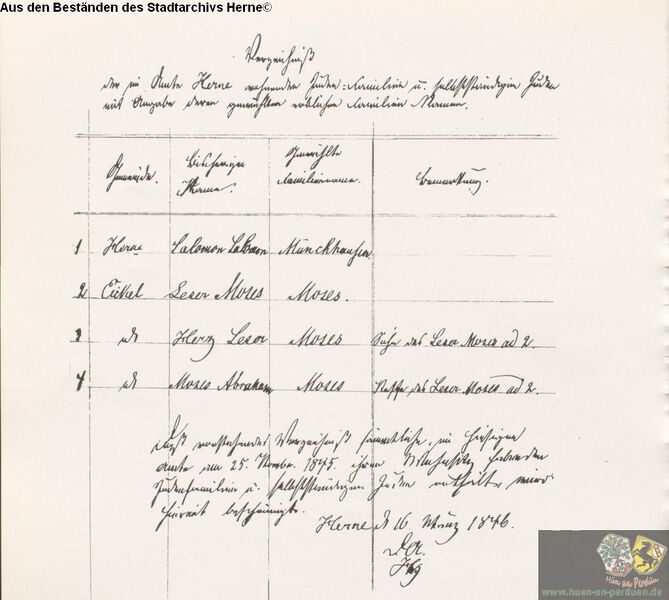 Aus den Beständen des Stadtarchivs Herne©
Verzeichniß
der im Amte Herne wohnenden Juden-Familien u. selbstständigen Juden
mit Angabe deren gewählten erblichen Familien Namen.
Gemeinde. Bisheriger Name. Gewählte Familienname. Bemerkung.
1 Herne Salomon Salomon Münckhausen.
2 Eickel Leser Moses Moses.
3 do Herz Leser Moses Sohn des Leser Moses ad 2.
4 do Moses Abraham Moses Neffe des Leser Moses ad 2.
Daß vorstehendes Verzeichniß sämmtliche, im hiesigen
Amte am 25. Novbr. 1845 ihren Wohnsitz habenden
Judenfamilien u. selbstständigen Juden enthalte wird
hiermit bescheinigt.
Herne d 16 März 1846.
Hün un Perdün
www.huen-un-perduen.de